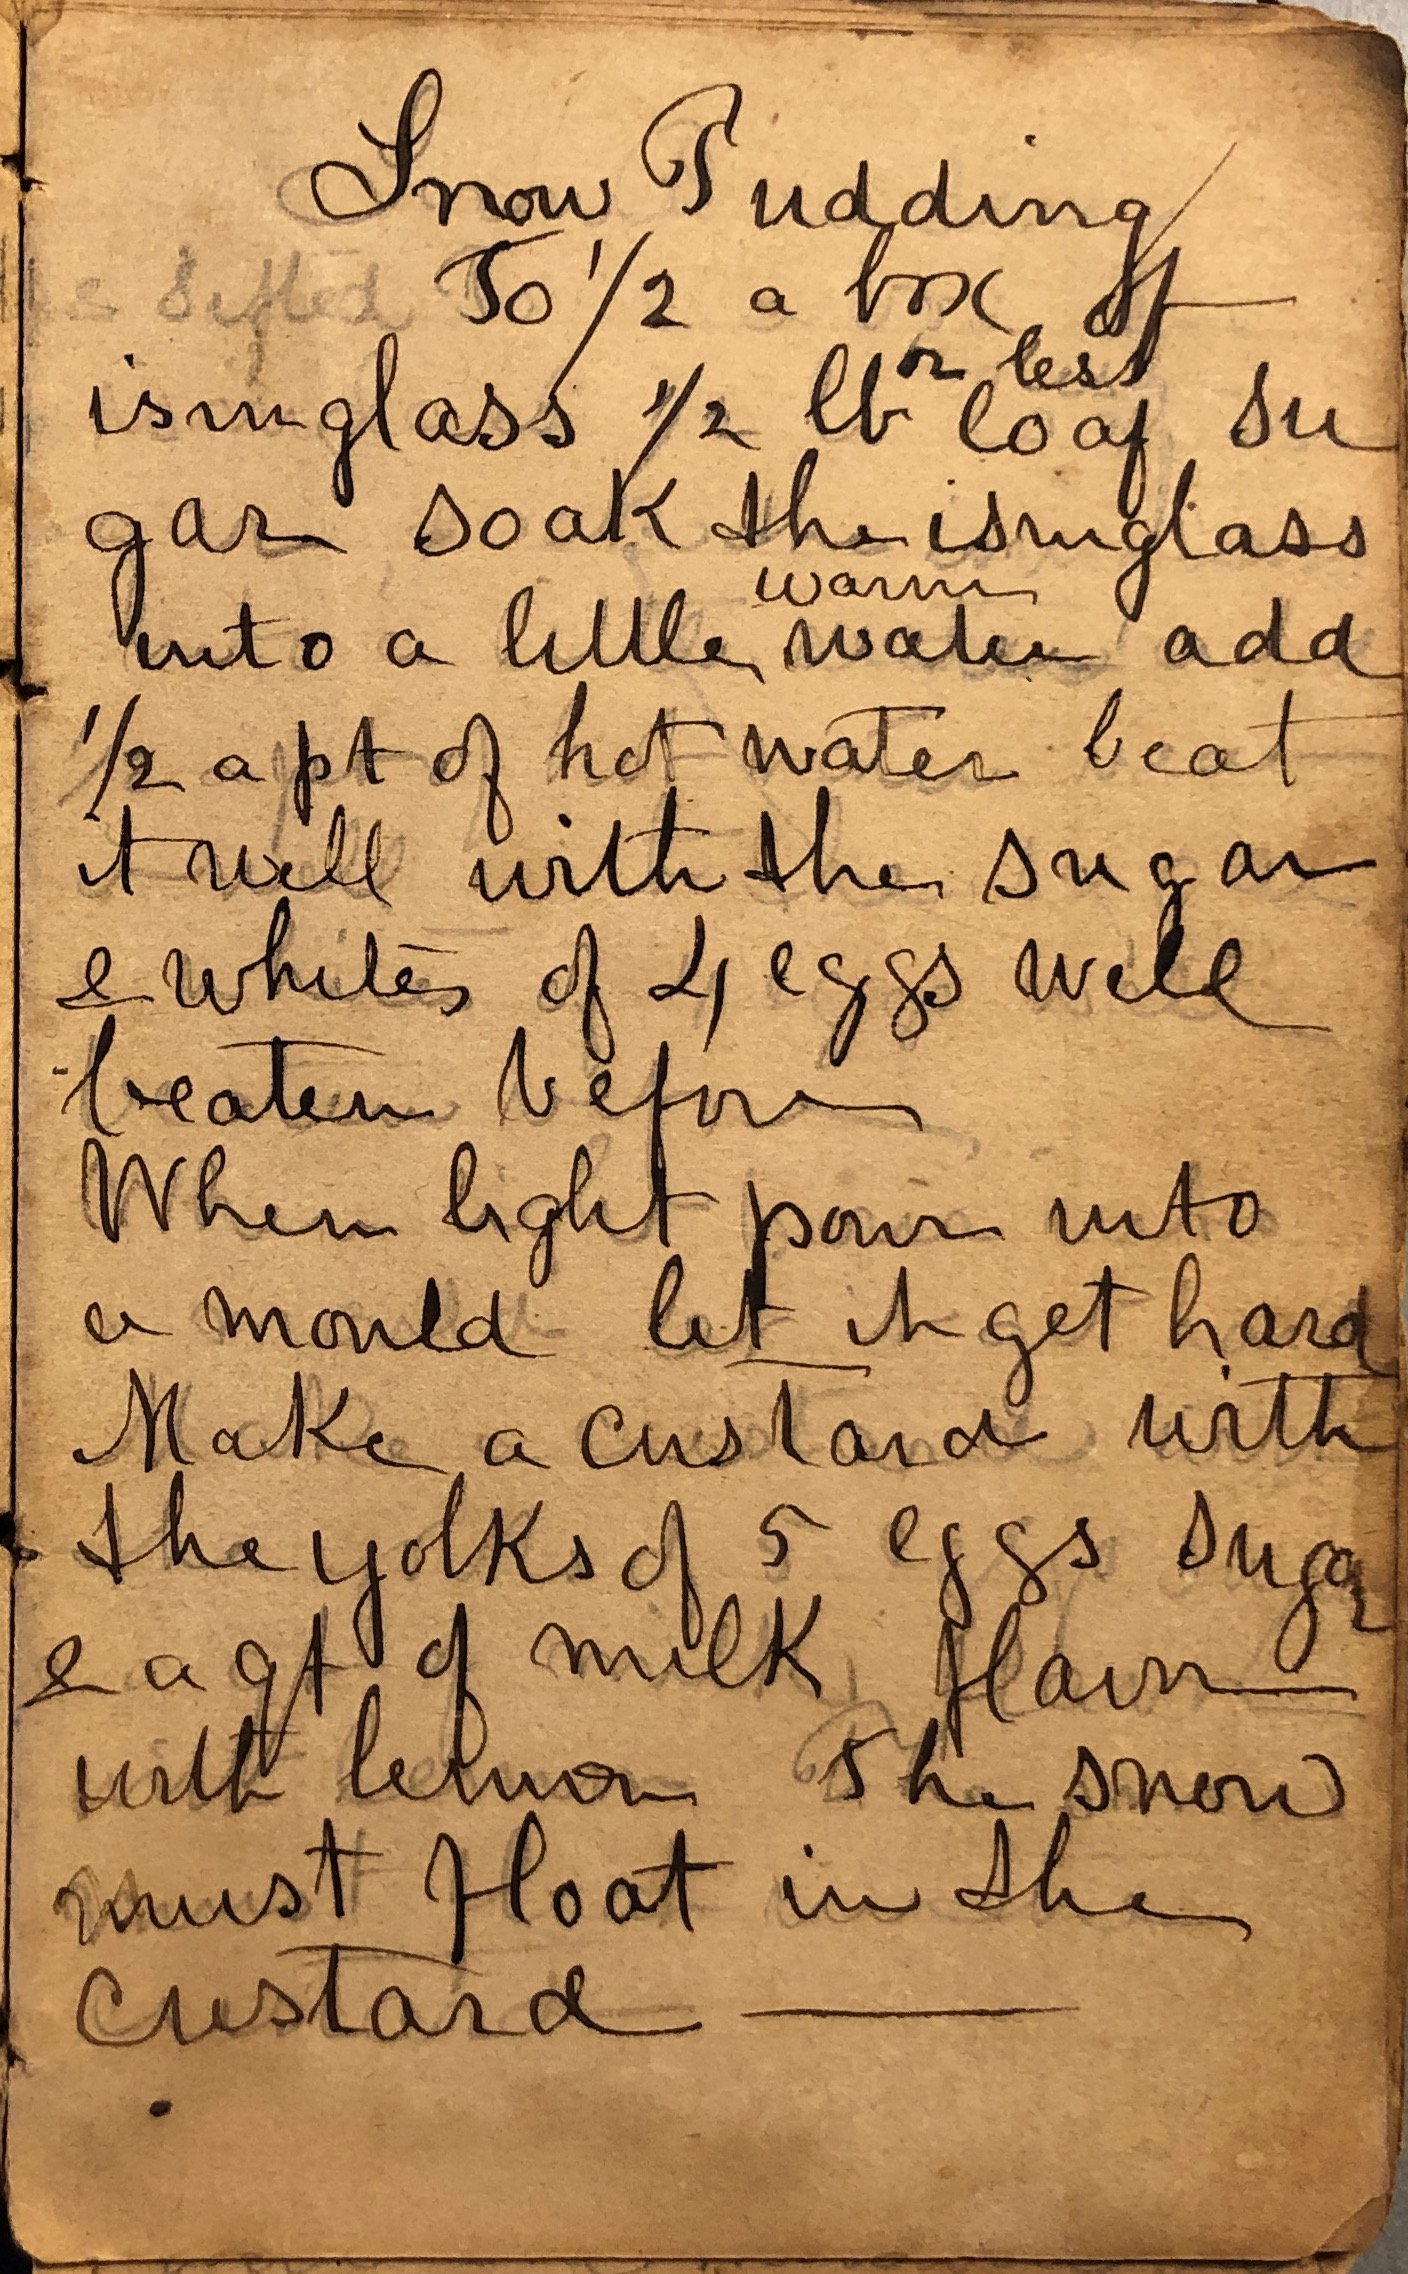 Snow Pudding
To 1/2 a box of
isinglass 1/2 lb or less loaf su
gar soak the isinglass
into a little warm water add
1/2 a pt of hot water beat
it well with the sugar
& whites of 4 eggs well
beaten before
When light pour into
a mould let it get hard
Make a custard with
the yolks of 5 eggs sugar
& a qt of milk flavr
with lemon The snow
must float in the
custard —